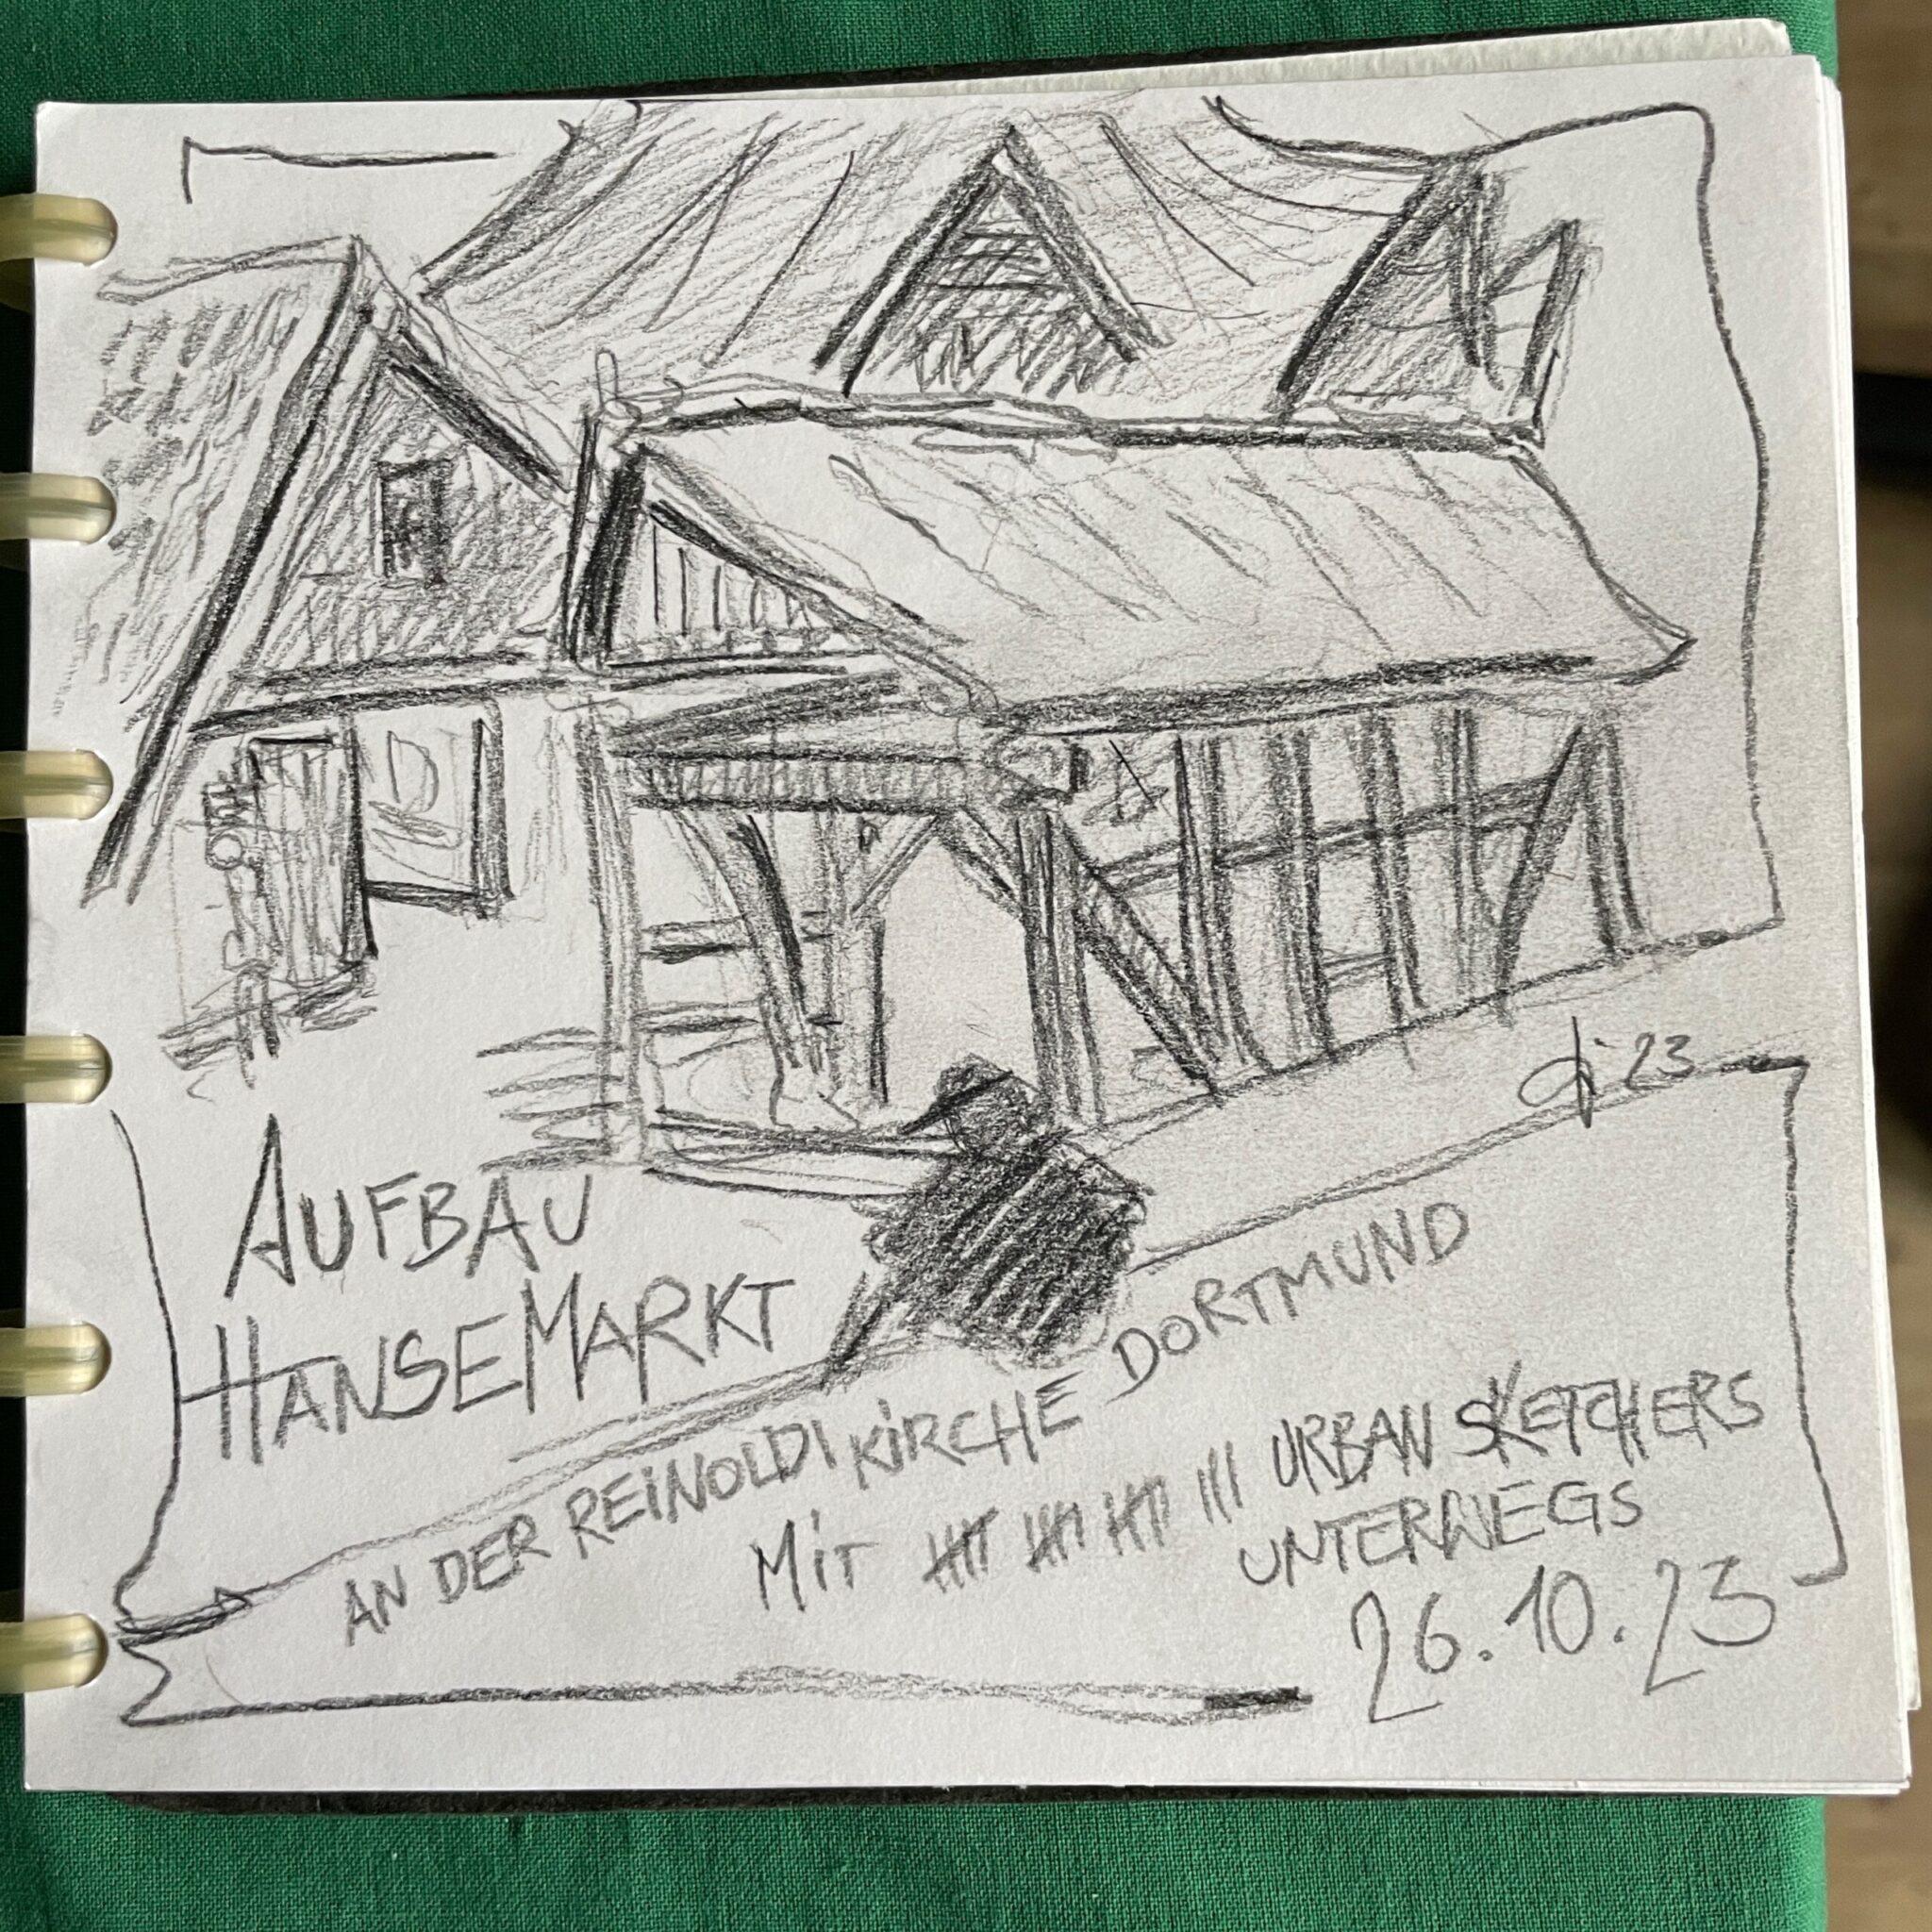 23
AUFBAU
HANSEMARKT
AN DER REINOLDIKIRCHE DORTMUND
MIT 𝍸 𝍸 𝍸 ||| URBAN SKETCHERS
UNTERWEGS
26.10.23